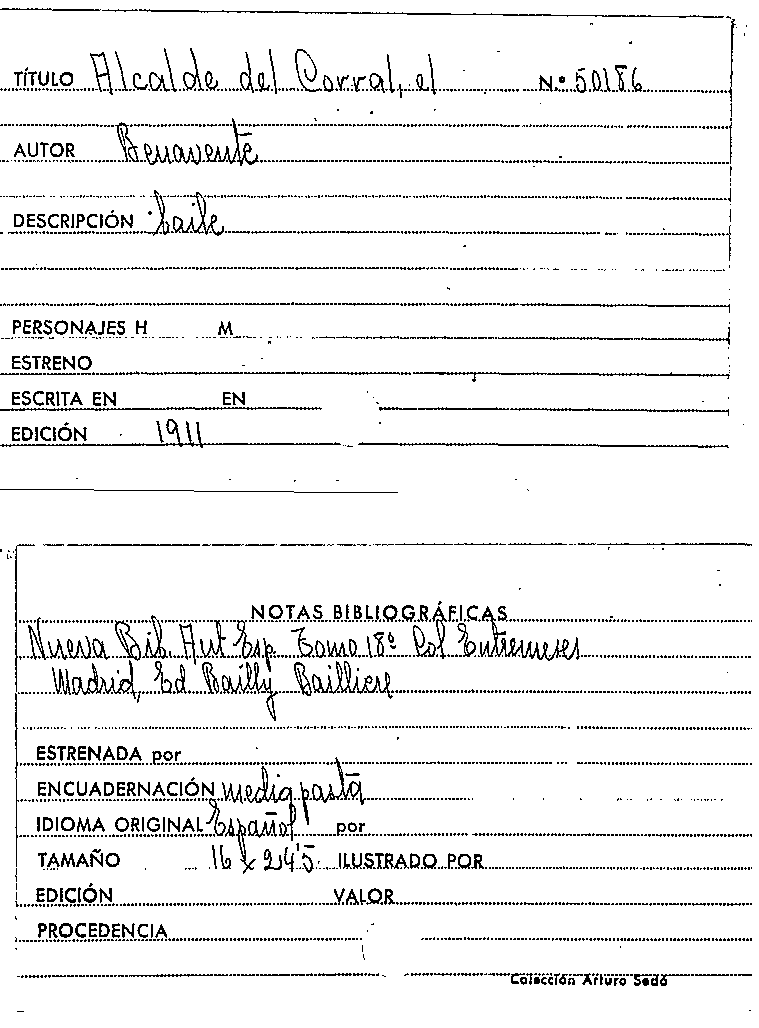 TÍTULO Alcalde del Corral, el N.º 50186
AUTOR Benavente
DESCRIPCIÓN baile
PERSONAJES H M
ESTRENO
ESCRITA EN EN
EDICIÓN 1911
NOTAS BIBLIOGRÁFICAS
Nueva Bib. Aut Esp. Tomo 18º Col Entremeses
Madrid, Ed. Bailly Bailliere
ESTRENADA por
ENCUADERNACIÓN media pasta
IDIOMA ORIGINAL Español por
TAMAÑO 16 x 24'5 ILUSTRADO POR
EDICIÓN VALOR
PROCEDENCIA
Colección Arturo Sedó